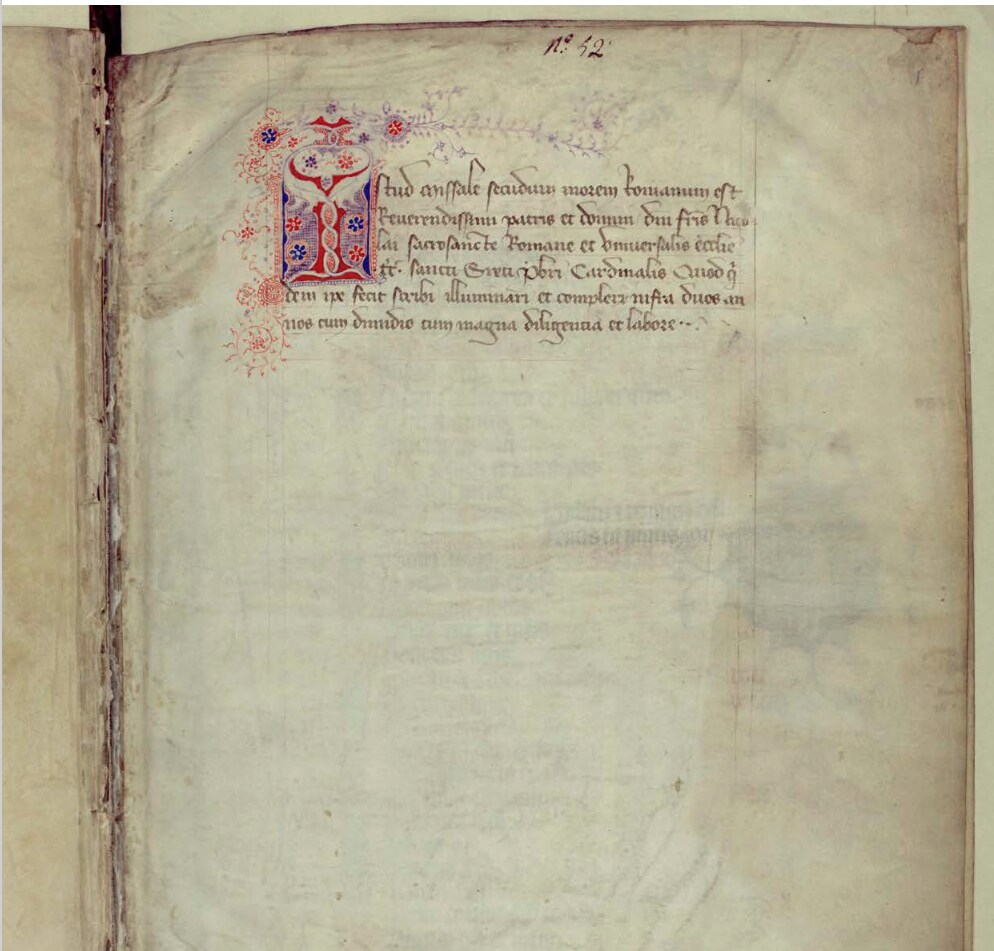 nº. 52
Istud missale secūdum morem Romanum est
Reuerendissimi patris et domini dni fris Nico
lai sacrosancte Romane et vniuersalis ecclie
tt. sancti Sixti pbri Cardinalis Quod q
dem ipe fecit scribi illuminari et complere infra duos an
nos cum dimidio cum magna diligencia et labore